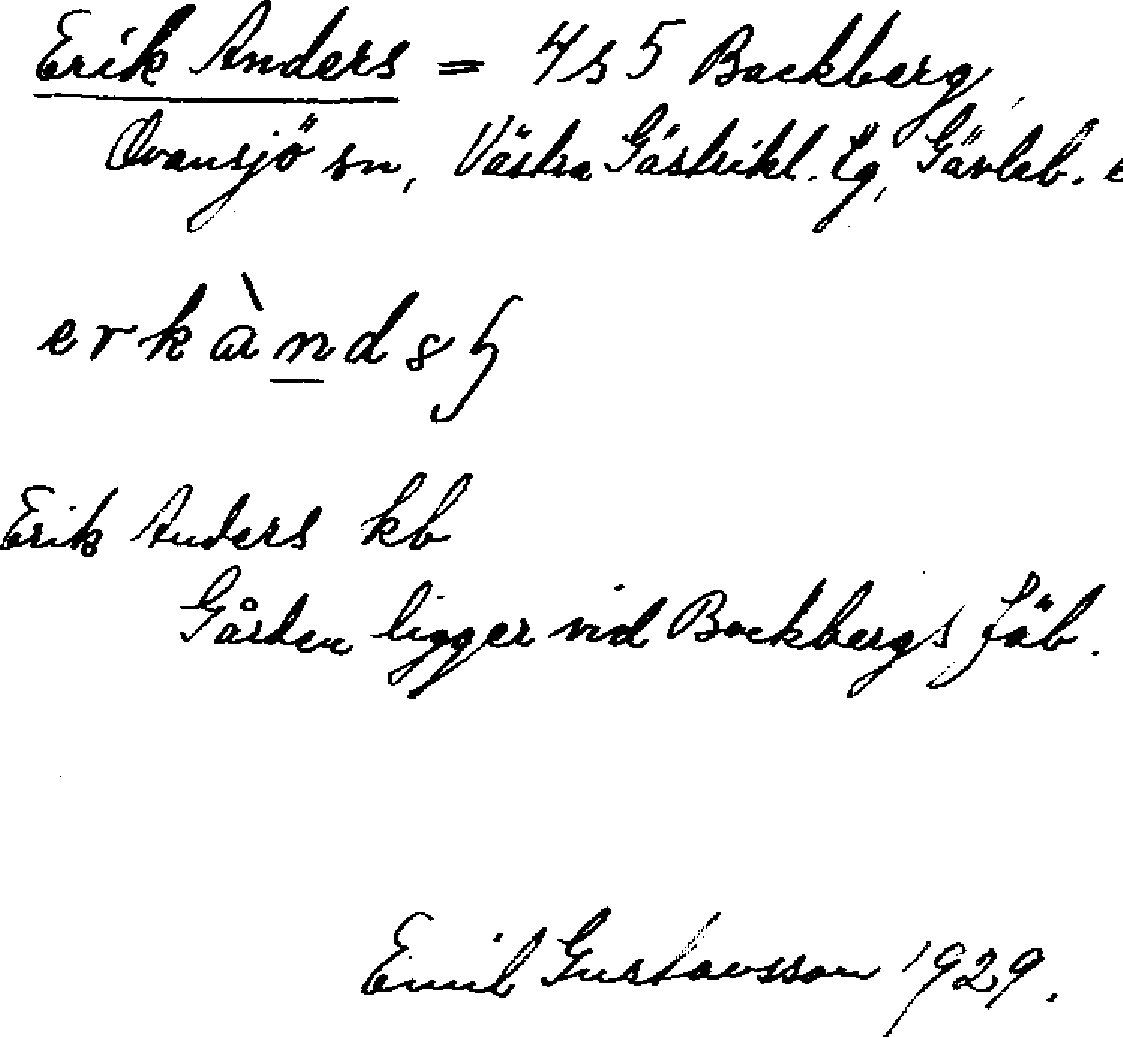 Erik Anders = 4s5 Backberg,
Ovansjö sn, Västra Gästrikl. tg, Gävleb.
erkànds
Erik Anders kb
Gården ligger vid Backbergs fäb.
Emil Gustavsson 1929.